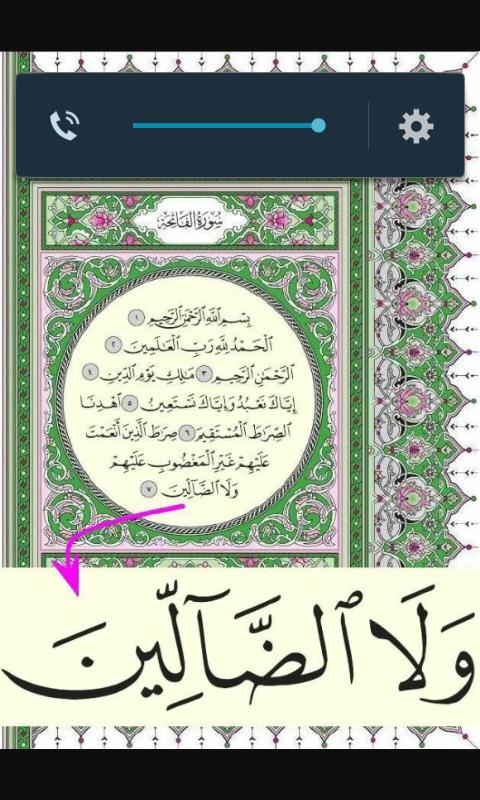 سُورَةُ الفَاتِحَةِ
بِسۡمِ ٱللَّهِ ٱلرَّحۡمَٰنِ ٱلرَّحِيمِ ١
ٱلۡحَمۡدُ لِلَّهِ رَبِّ ٱلۡعَٰلَمِينَ ٢
ٱلرَّحۡمَٰنِ ٱلرَّحِيمِ ٣ مَٰلِكِ يَوۡمِ ٱلدِّينِ ٤
إِيَّاكَ نَعۡبُدُ وَإِيَّاكَ نَسۡتَعِينُ ٥ ٱهۡدِنَا
ٱلصِّرَٰطَ ٱلۡمُسۡتَقِيمَ ٦ صِرَٰطَ ٱلَّذِينَ أَنۡعَمۡتَ
عَلَيۡهِمۡ غَيۡرِ ٱلۡمَغۡضُوبِ عَلَيۡهِمۡ
وَلَا ٱلضَّآلِّينَ ٧
وَلَا ٱلضَّآلِّينَ